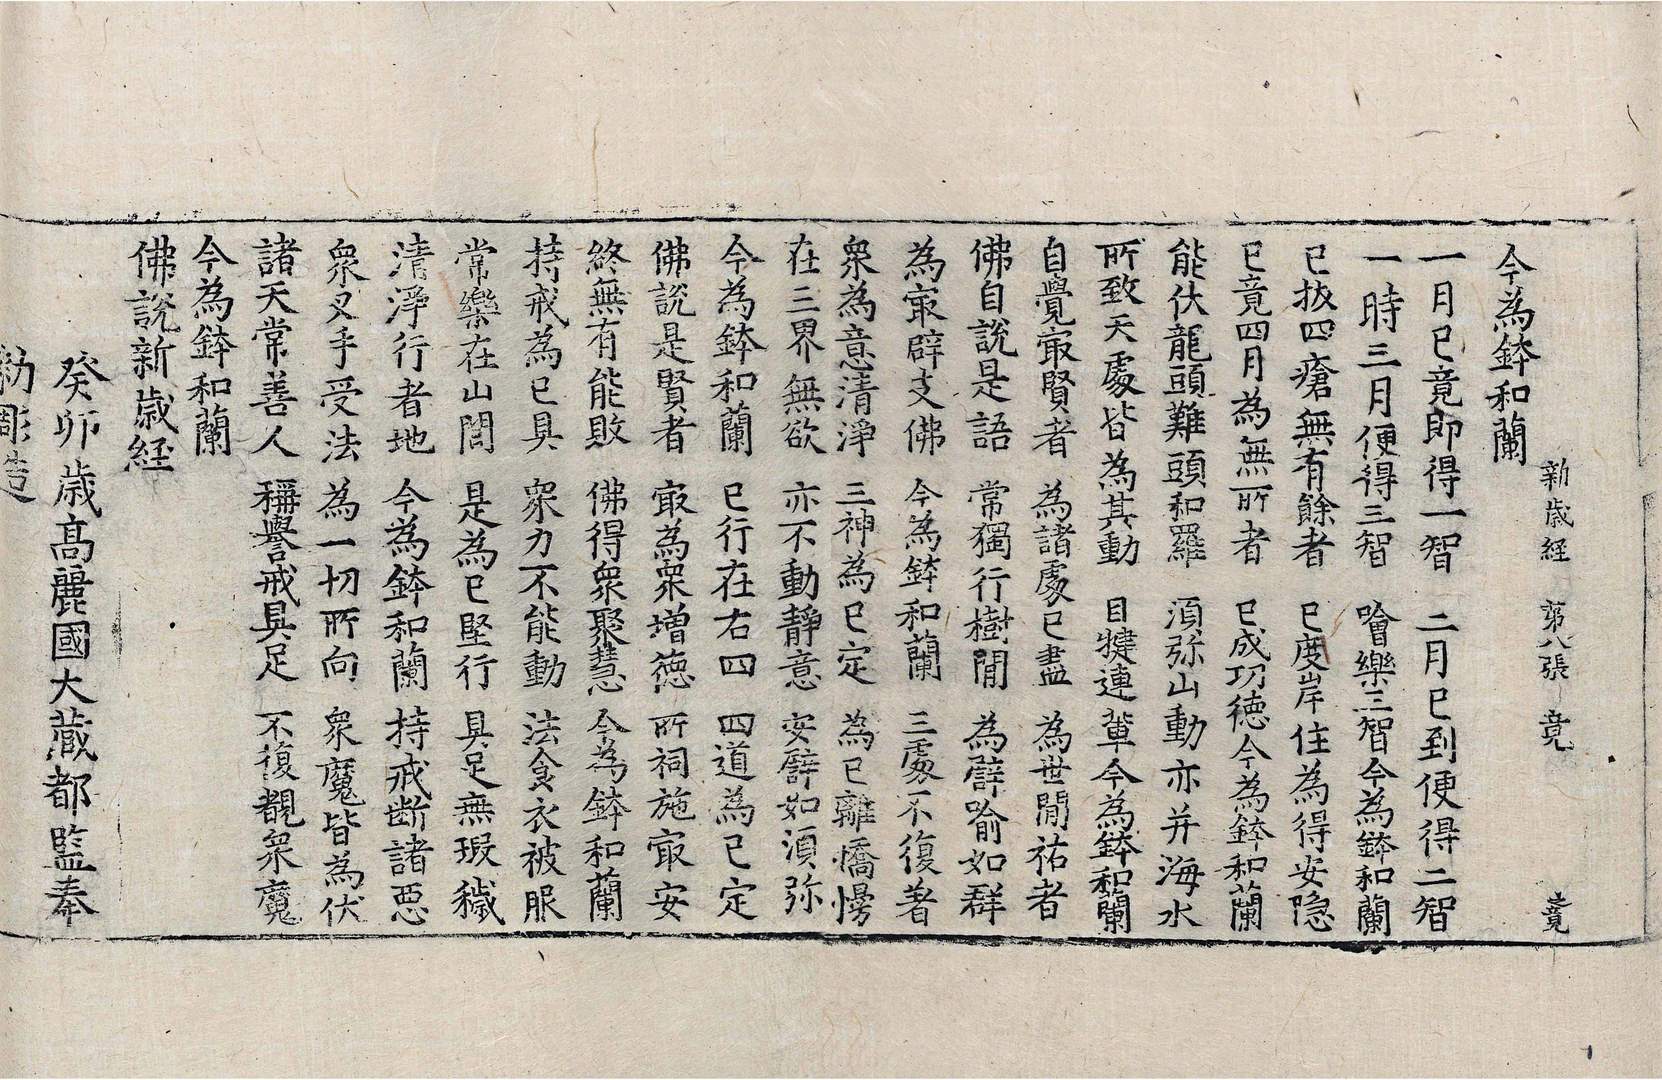 新歲経 第八張 竟 竟
今為鉢和蘭
一月已竟即得一智 二月已到便得二智
一時三月便得三智 噲樂三智今為鉢和蘭
已抜四瘡無有餘者 已度岸住為得安隐
已竟四月為無所者 已成功德今為鉢和蘭
能伏龍頭難頭和羅 須弥山動亦并海水
所致天處皆為其動 目揵連輩今為鉢和蘭
自覺㝡賢者 為諸處已盡 為世間祐者
佛自說是語 常獨行樹間 為譬喻如群
為㝡辟支佛 今為鉢和蘭 三處不復著
衆為意清淨 三神為已定 為已離憍慢
在三界無欲 亦不動靜意 安譬如須弥
今為鉢和蘭 已行在右四 四道為已定
佛說是賢者 㝡為衆增德 所祠施㝡安
終無有能敗 佛得衆聚慧 今為鉢和蘭
持戒為已具 衆力不能動 法食衣被服
常樂在山間 是為已堅行 具足無瑕穢
清淨行者地 今為鉢和蘭 持戒断諸悪
衆叉手受法 為一切所向 衆魔皆為伏
諸天常善人 稱譽戒具足 不復覩衆魔
今為鉢和蘭
佛說新歲経
癸卯歲髙麗國大藏都監奉
勑彫造